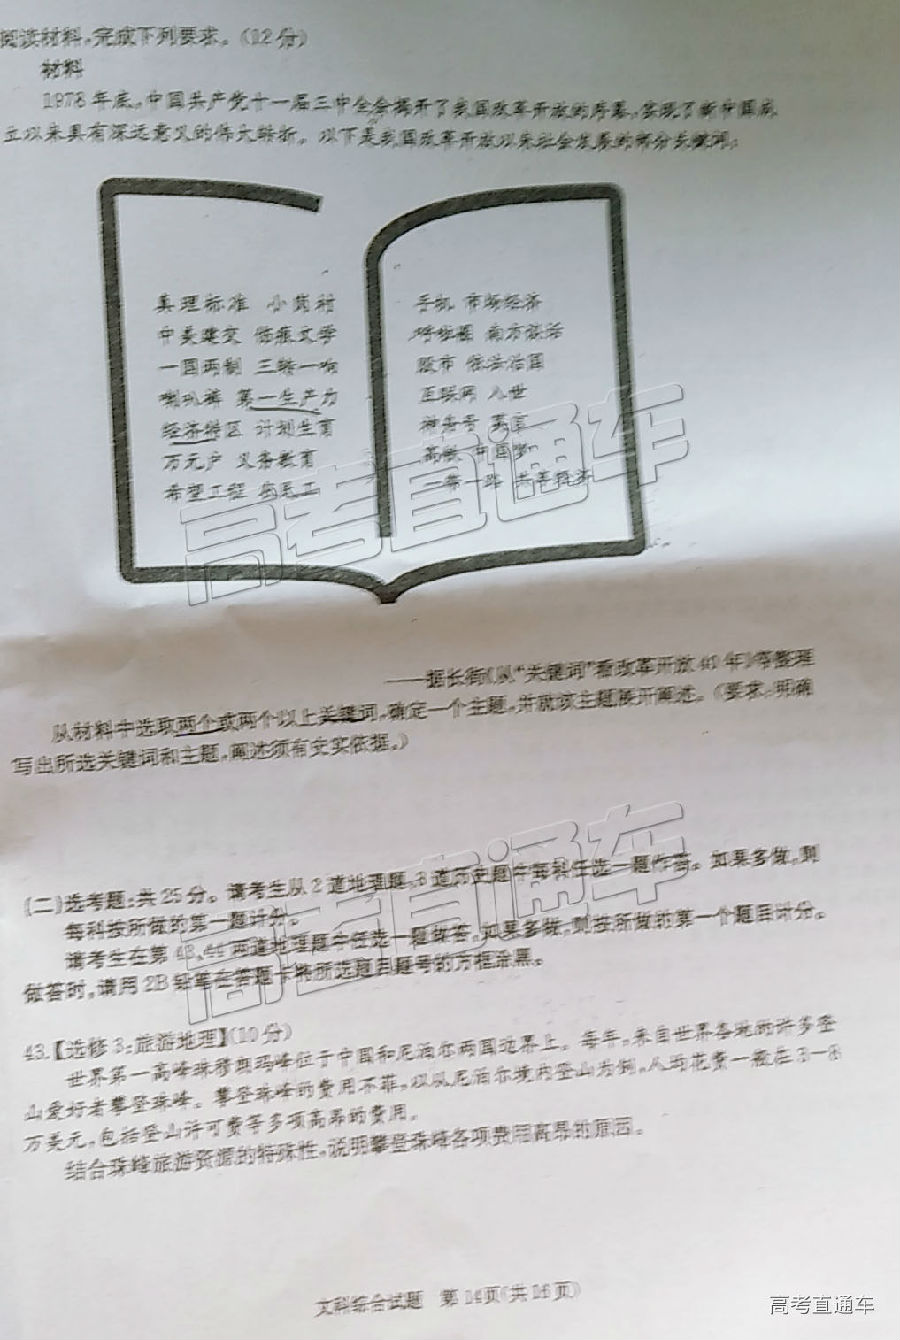 阅读材料,完成下列要求。(12分)
材料
1978年底,中国共产党十一届三中全会揭开了我国改革开放的序幕,实现了新中国成
立以来具有深远意义的伟大转折。以下是我国改革开放以来社会发展的部分关键词:
真理标准 小岗村
中美建交 伤痕文学
一国两制 三转一响
喇叭裤 第一生产力
经济特区 计划生育
万元户 义务教育
希望工程 农民工
手机 市场经济
呼啦圈 南方谈话
股市 依法治国
互联网 入世
神舟号 奥运
高铁 中国梦
一带一路 共享经济
——据长街《从“关键词”看改革开放40年》等整理
从材料中选取两个或两个以上关键词,确定一个主题,并就该主题展开阐述。(要求:明确
写出所选关键词和主题,阐述须有史实依据。)
(二)选考题:共25分。请考生从2道地理题,3道历史题中每科任选一题作答。如果多做,则
每科按所做的第一题计分。
请考生在第43、44两道地理题中任选一题做答,如果多做,则按所做的第一个题目计分。
做答时,请用2B铅笔在答题卡将所选题目题号的方框涂黑。
43.【选修3:旅游地理】(10分)
世界第一高峰珠穆朗玛峰位于中国和尼泊尔两国边界上。每年,来自世界各地的许多登
山爱好者攀登珠峰。攀登珠峰的费用不菲,仅从尼泊尔境内登山为例,人均花费一般在3—8
万美元,包括登山许可费等多项高昂的费用。
结合珠峰旅游资源的特殊性,说明攀登珠峰各项费用高昂的原因。
文科综合试题 第14页(共16页)
高考直通车
高考直通车
高考直通车